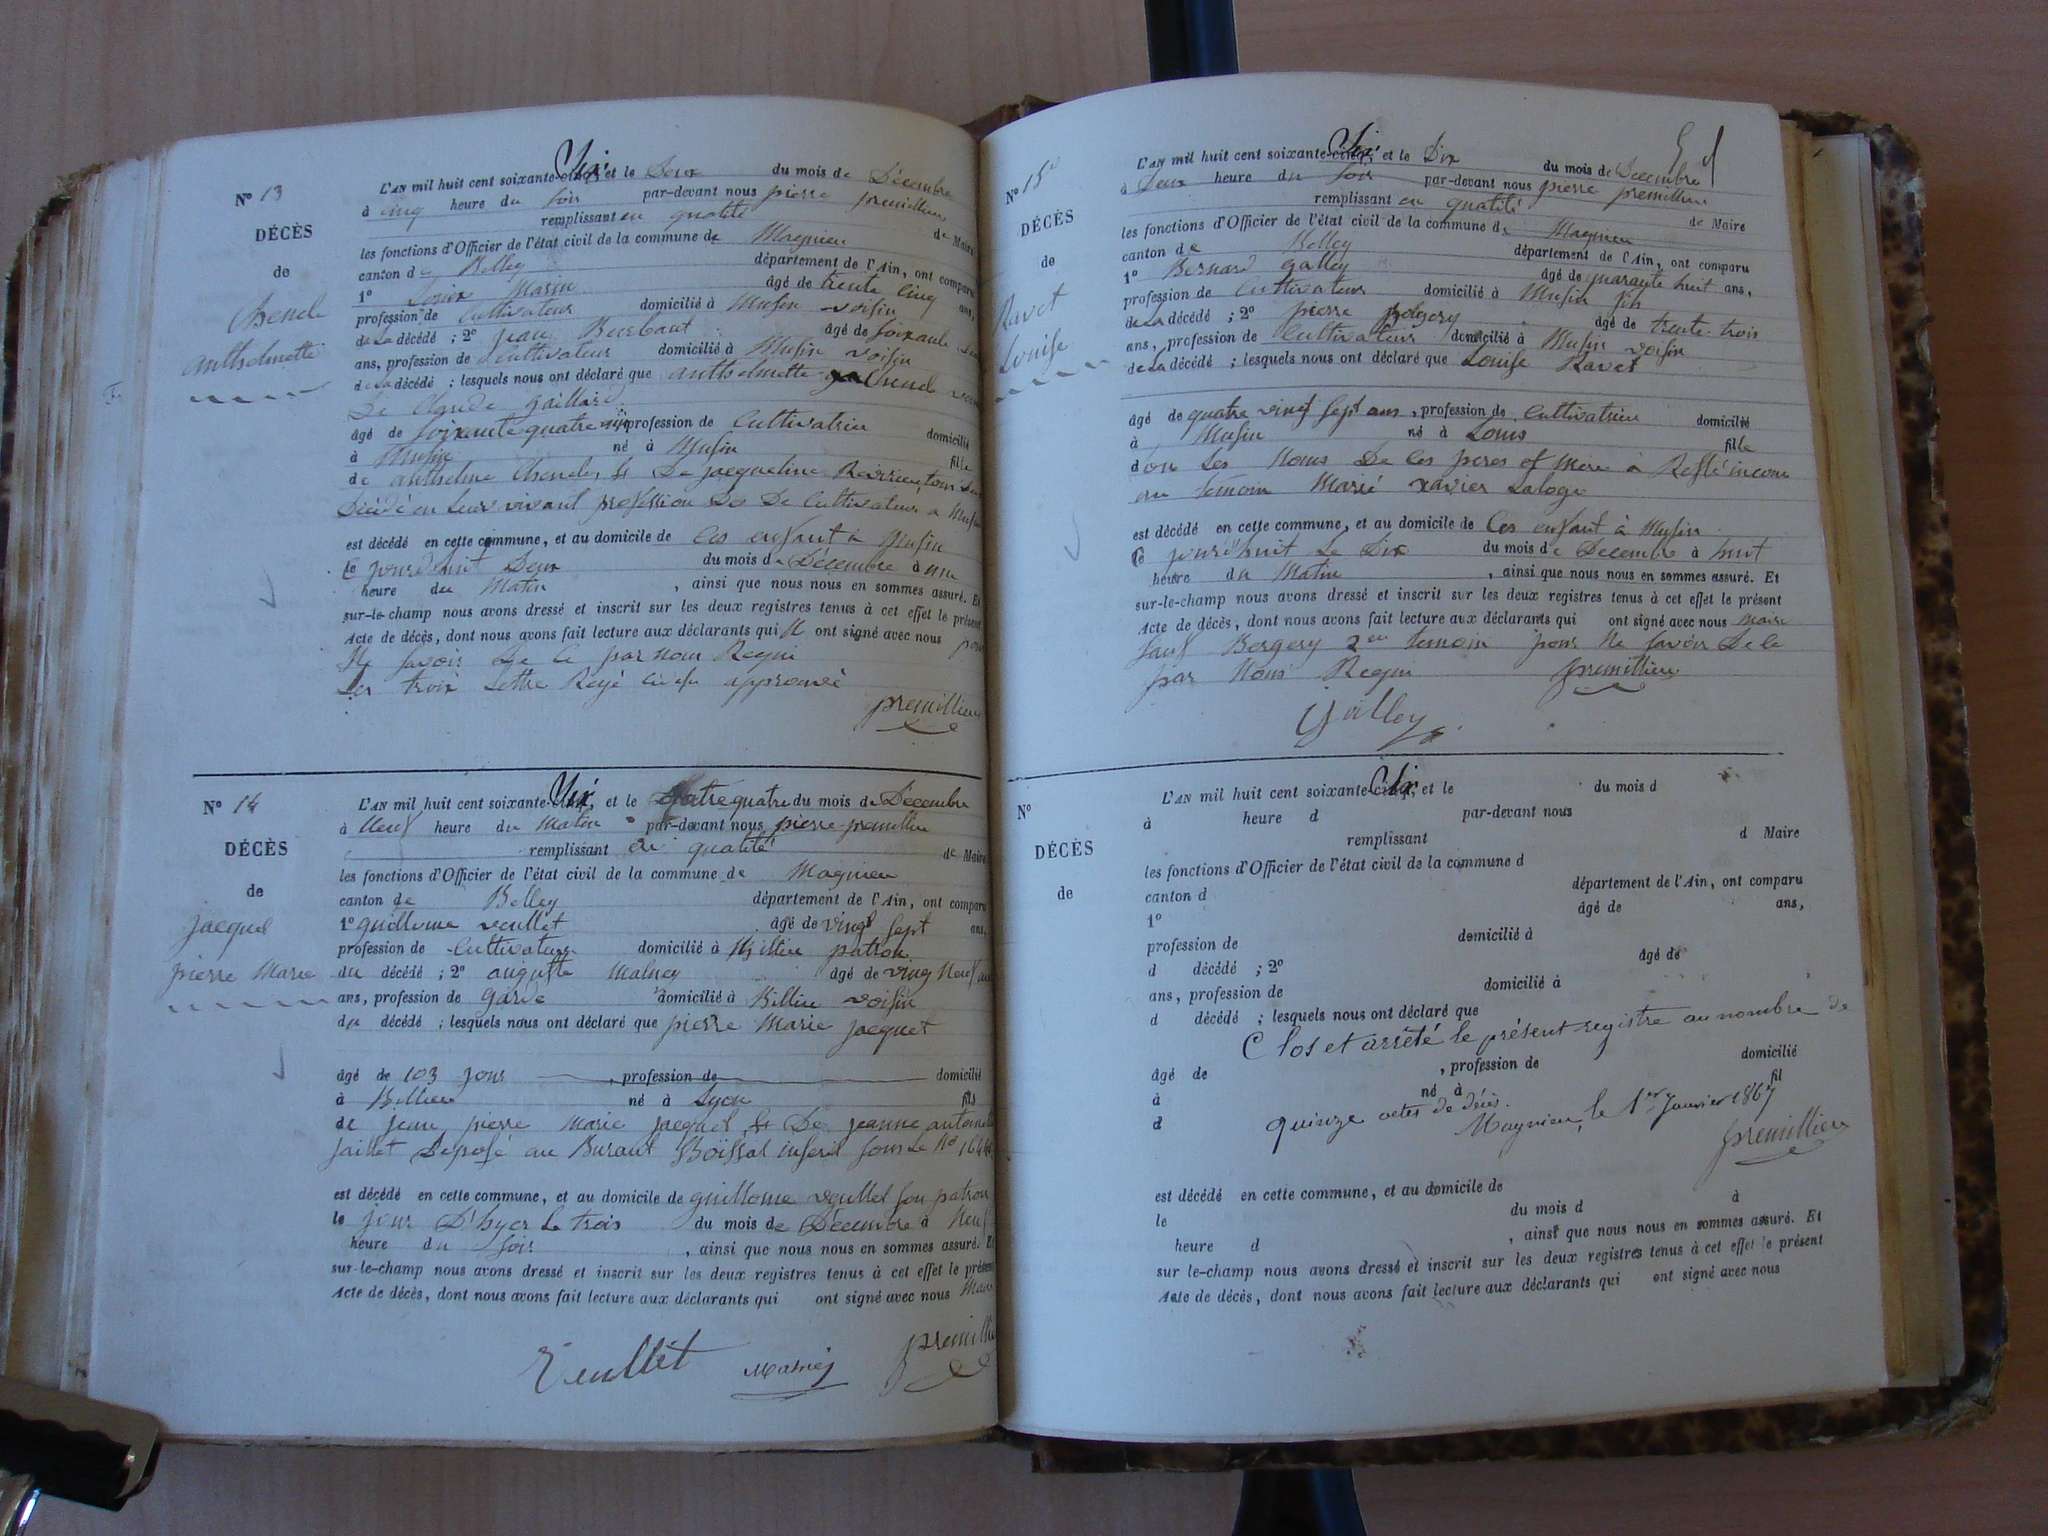 N° 13
DÉCÈS
de
Chenel
anthelmette
L'AN mil huit cent soixante-six, et le Deux du mois de Décembre
à cinq heure du soir par-devant nous pierre premillieu
remplissant en qualité de Maire
les fonctions d'Officier de l'état civil de la commune de Magnieu
canton de Belley département de l'Ain, ont comparu
1° Louis Marin âgé de trente cinq ans,
profession de cultivateur domicilié à Musin voisin
de La décédé ; 2° jean âgé de soixante
ans, profession de cultivateur domicilié à Musin voisin
de La décédé ; lesquels nous ont déclaré que anthelmette Chenel
De Claude gaillard
âgé de soixante quatre profession de Cultivatrice domicilié
à Musin né à Musin fille
de anthelme Chenel, & De jacqueline tous
Décédé en Leur vivant profession De Cultivateur a Musin
est décédé en cette commune, et au domicile de Ces enfant à Musin
le jourdhuit Deux du mois de Décembre à une
heure du Matin , ainsi que nous nous en sommes assuré. Et
sur-le-champ nous avons dressé et inscrit sur les deux registres tenus à cet effet le présent
Acte de décès, dont nous avons fait lecture aux déclarants qui N ont signé avec nous pour
Ne savoir De Ce par nous Requi
Les trois Lettre Reyé approuvé
premillieu
N° 14
DÉCÈS
de
jacquet
pierre Marie
L'AN mil huit cent soixante-six, et le quatre du mois de Décembre
à Neuf heure du Matin par-devant nous pierre premillieu
remplissant en qualité de Maire
les fonctions d'Officier de l'état civil de la commune de Magnieu
canton de Belley département de l'Ain, ont comparu
1° guillome veullet âgé de vingt sept ans,
profession de Cultivateur domicilié à Billieu patron
du décédé ; 2° auguste Malney âgé de ving Neuf ans
ans, profession de garde domicilié à Billieu voisin
du décédé ; lesquels nous ont déclaré que pierre Marie jacquet
âgé de 103 jours , profession de domicilié
à Billieu né à Lyon fils
de jean pierre Marie jacquet & De jeanne
jaillet Deposé au Buraut inscrit sous Le N°
est décédé en cette commune, et au domicile de guillome veullet son patron
le jour D'hyer le trois du mois de Décembre à Neuf
heure du soir , ainsi que nous nous en sommes assuré. Et
sur-le-champ nous avons dressé et inscrit sur les deux registres tenus à cet effet le présent
Acte de décès, dont nous avons fait lecture aux déclarants qui ont signé avec nous Maire
Veullet Malney premillieu
N° 15
DÉCÈS
de
Ravet
Louise
L'AN mil huit cent soixante-six, et le Dix du mois de Décembre
à Deux heure du soir par-devant nous pierre premillieu
remplissant en qualité de Maire
les fonctions d'Officier de l'état civil de la commune de Magnieu
canton de Belley département de l'Ain, ont comparu
1° Bernard galley âgé de quarante huit ans,
profession de Cultivateur domicilié à Musin fils
de La décédé ; 2° pierre Bolgery âgé de trente-trois
ans, profession de Cultivateur domicilié à Musin voisin
de La décédé ; lesquels nous ont déclaré que Louise Ravet
âgé de quatre vingt sept ans, profession de Cultivatrice domicilié
à Musin né à Louis fille
don Les Noms De Ces peres et Mere à Resté inconu
au temoin Marié xavier
est décédé en cette commune, et au domicile de Ces enfant à Musin
le jourd'huit Le Dix du mois de Décembre à huit
heure du Matin , ainsi que nous nous en sommes assuré. Et
sur-le-champ nous avons dressé et inscrit sur les deux registres tenus à cet effet le présent
Acte de décès, dont nous avons fait lecture aux déclarants qui ont signé avec nous Maire
sauf Borgery 2eu temoin pour Ne savoir De Ce
par Nous Requi premillieu
Galley
N°
DÉCÈS
de
L'AN mil huit cent soixante-six, et le du mois d
à heure d par-devant nous
remplissant d Maire
les fonctions d'Officier de l'état civil de la commune d
canton d département de l'Ain, ont comparu
1° âgé de ans,
profession de domicilié à
d décédé ; 2° âgé de
ans, profession de domicilié à
d décédé ; lesquels nous ont déclaré que
Clos et arrêté le présent registre au nombre de
âgé de , profession de domicilié
à né à fil
d quinze actes de décès. Magnieu, le 1er Janvier 1867
premillieu
est décédé en cette commune, et au domicile de
le du mois d à
heure d , ainsi que nous nous en sommes assuré. Et
sur le-champ nous avons dressé et inscrit sur les deux registres tenus à cet effet le présent
Acte de décès, dont nous avons fait lecture aux déclarants qui ont signé avec nous